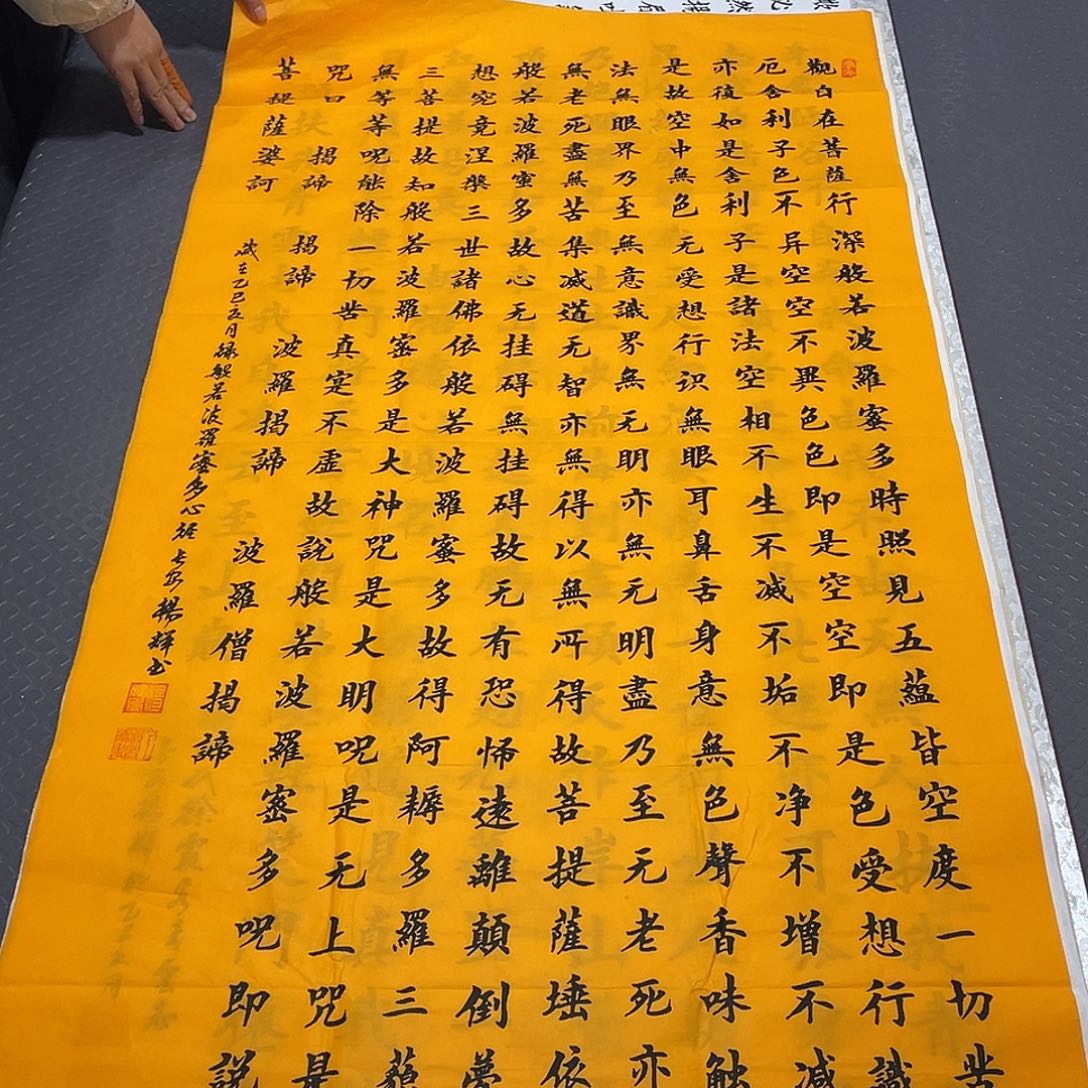 觀自在菩薩行深般若波羅蜜多時照見五蘊皆空度一切苦
厄舍利子色不异空空不異色色即是空空即是色受想行識
亦復如是舍利子是諸法空相不生不滅不垢不净不增不減
是故空中無色无受想行识無眼耳鼻舌身意無色聲香味触
法無眼界乃至無意識界無无明亦無无明盡乃至无老死亦
無老死盡無苦集滅道无智亦無得以無所得故菩提薩埵依
般若波羅蜜多故心无挂碍無挂碍故无有恐怖遠離顛倒夢
想究竟涅槃三世諸佛依般若波羅蜜多故得阿耨多羅三藐
三菩提故知般若波羅蜜多是大神咒是大明呪是无上咒是
無等等呪能除一切苦真寔不虚故說般若波羅蜜多呪即説
咒曰 揭諦 揭諦 波羅揭諦 波羅僧揭諦
菩提薩婆訶
歲在乙巳五月録般若波羅蜜多心經 长安楊輝书